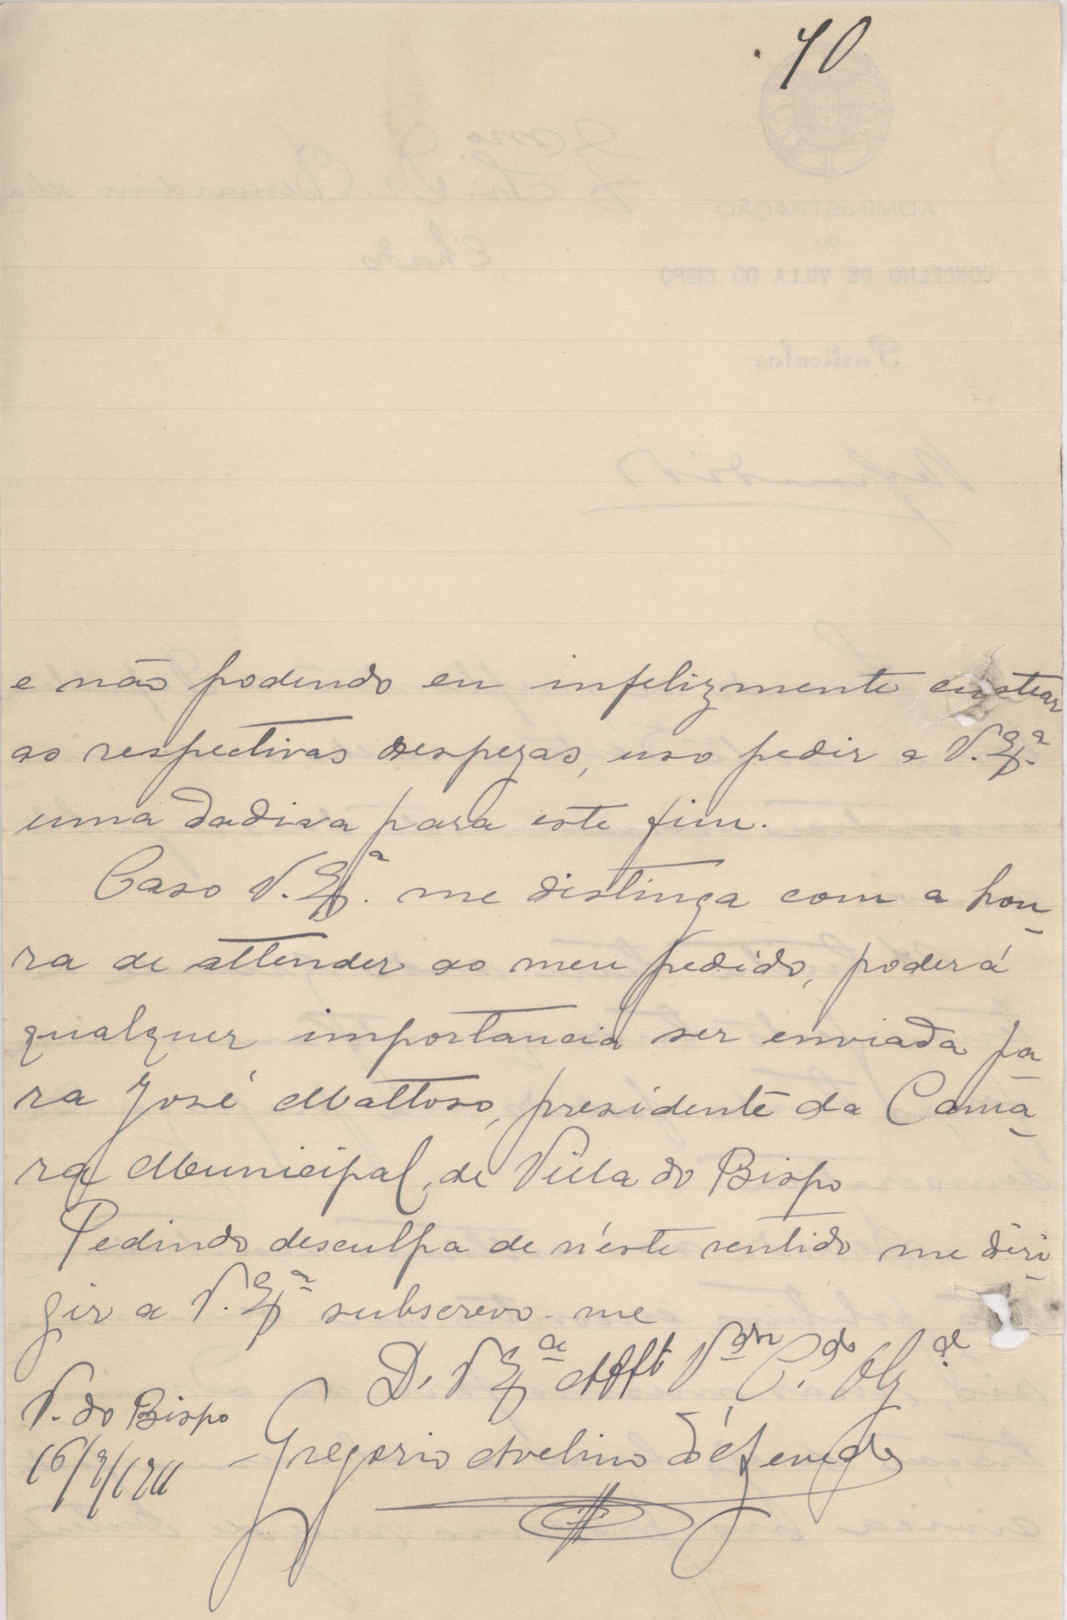 40
e não podendo eu infelizmente custear
as respectivas despezas, uso pedir a V. Ex.ª
uma dadiva para este fim.
Caso V. Ex.ª me distinga com a hon-
ra de attender ao meu pedido, poderá
qualquer importancia ser enviada pa-
ra José Mattoso, presidente da Cama-
ra Municipal, de Villa do Bispo
Pedindo desculpa de n'este sentido me diri-
gir a V. Ex.ª subscrevo-me
D. V. Ex.ª Att.º V.dor C.do Obg.do
V. do Bispo
Gregorio Avelino
16/9/